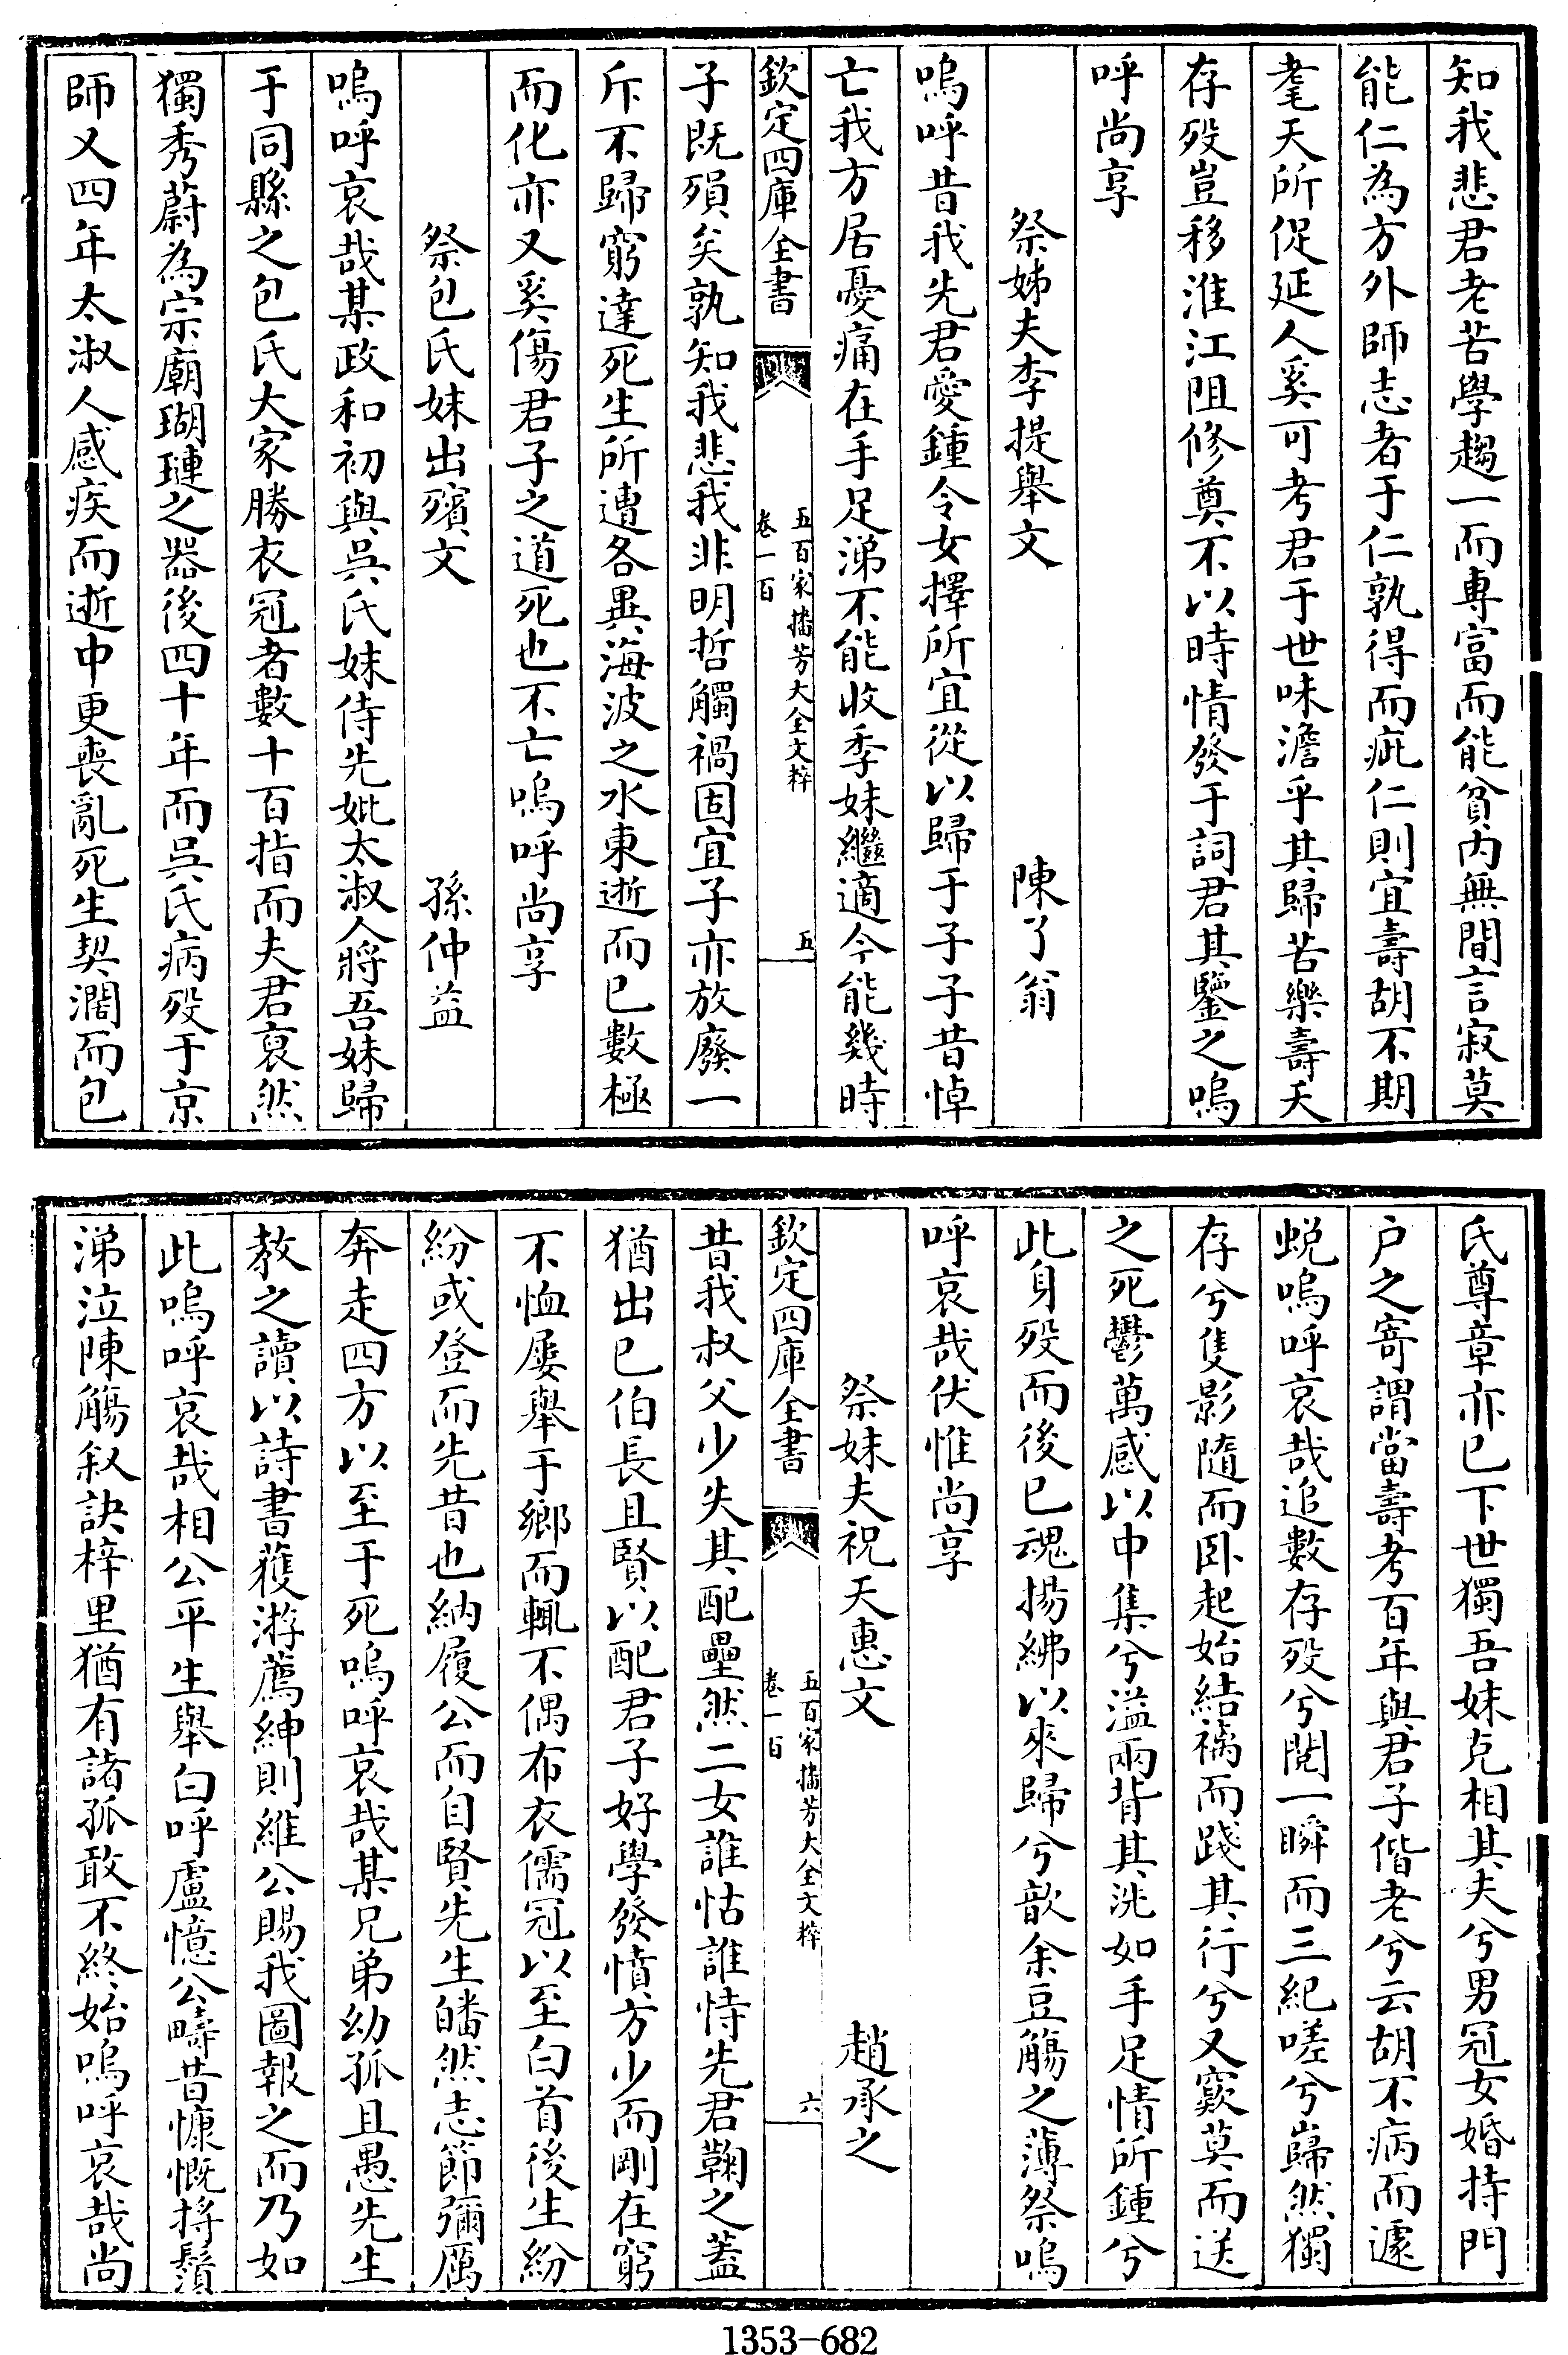 知我悲君老苦學趨一而專富而能貧内無間言寂莫
能仁為方外師志者于仁孰得而疵仁則宜壽胡不期
耄天所促延人奚可考君于世味澹乎其歸苦樂壽夭
存歿豈移淮江阻修奠不以時情發于詞君其鑒之嗚
呼尚享
祭姊夫李提舉文 陳了翁
嗚呼昔我先君愛鍾令女擇所宜從以歸于子子昔悼
亡我方居憂痛在手足涕不能收季妹繼適今能幾時
欽定四庫全書 五百家播芳大全文粹 卷一百 五
子既殞矣孰知我悲我非明哲觸禍固宜子亦放廢一
斥不歸窮達死生所遭各異海波之水東逝而已數極
而化亦又奚傷君子之道死也不亡嗚呼尚享
祭包氏妹出殯文 孫仲益
嗚呼哀哉某政和初與吳氏妹侍先妣太淑人將吾妹歸
于同縣之包氏大家勝衣冠者數十百指而夫君裒然
獨秀蔚為宗廟瑚璉之器後四十年而吳氏病歿于京
師又四年太淑人感疾而逝中更喪亂死生契濶而包
氏尊章亦已下世獨吾妹克相其夫兮男冠女婚持門
户之寄謂當壽考百年與君子偕老兮云胡不病而遽
蛻嗚呼哀哉追數存歿兮閱一瞬而三紀嗟兮巋然獨
存兮隻影隨而卧起始結褵而踐其行兮又窾莫而送
之死鬱萬感以中集兮溢兩背其洸如手足情所鍾兮
此身歿而後已魂揚紼以來歸兮歆余豆觴之薄祭嗚
呼哀哉伏惟尚享
祭妹夫祝天惠文 趙承之
欽定四庫全書 五百家播芳大全文粹 卷一百 六
昔我叔父少失其配壘然二女誰怙誰恃先君鞠之蓋
猶出已伯長且賢以配君子好學發憤方少而剛在窮
不恤屢舉于鄉而輒不偶布衣儒冠以至白首後生紛
紛或登而先昔也納履公而自賢先生皤然志節彌厲
奔走四方以至于死嗚呼哀哉某兄弟幼孤且愚先生
教之讀以詩書獲游薦紳則維公賜我圖報之而乃如
此嗚呼哀哉相公平生舉白呼盧憶公疇昔慷慨捋鬚
涕泣陳觴叙訣梓里猶有諸孤敢不終始嗚呼哀哉尚
1353-682